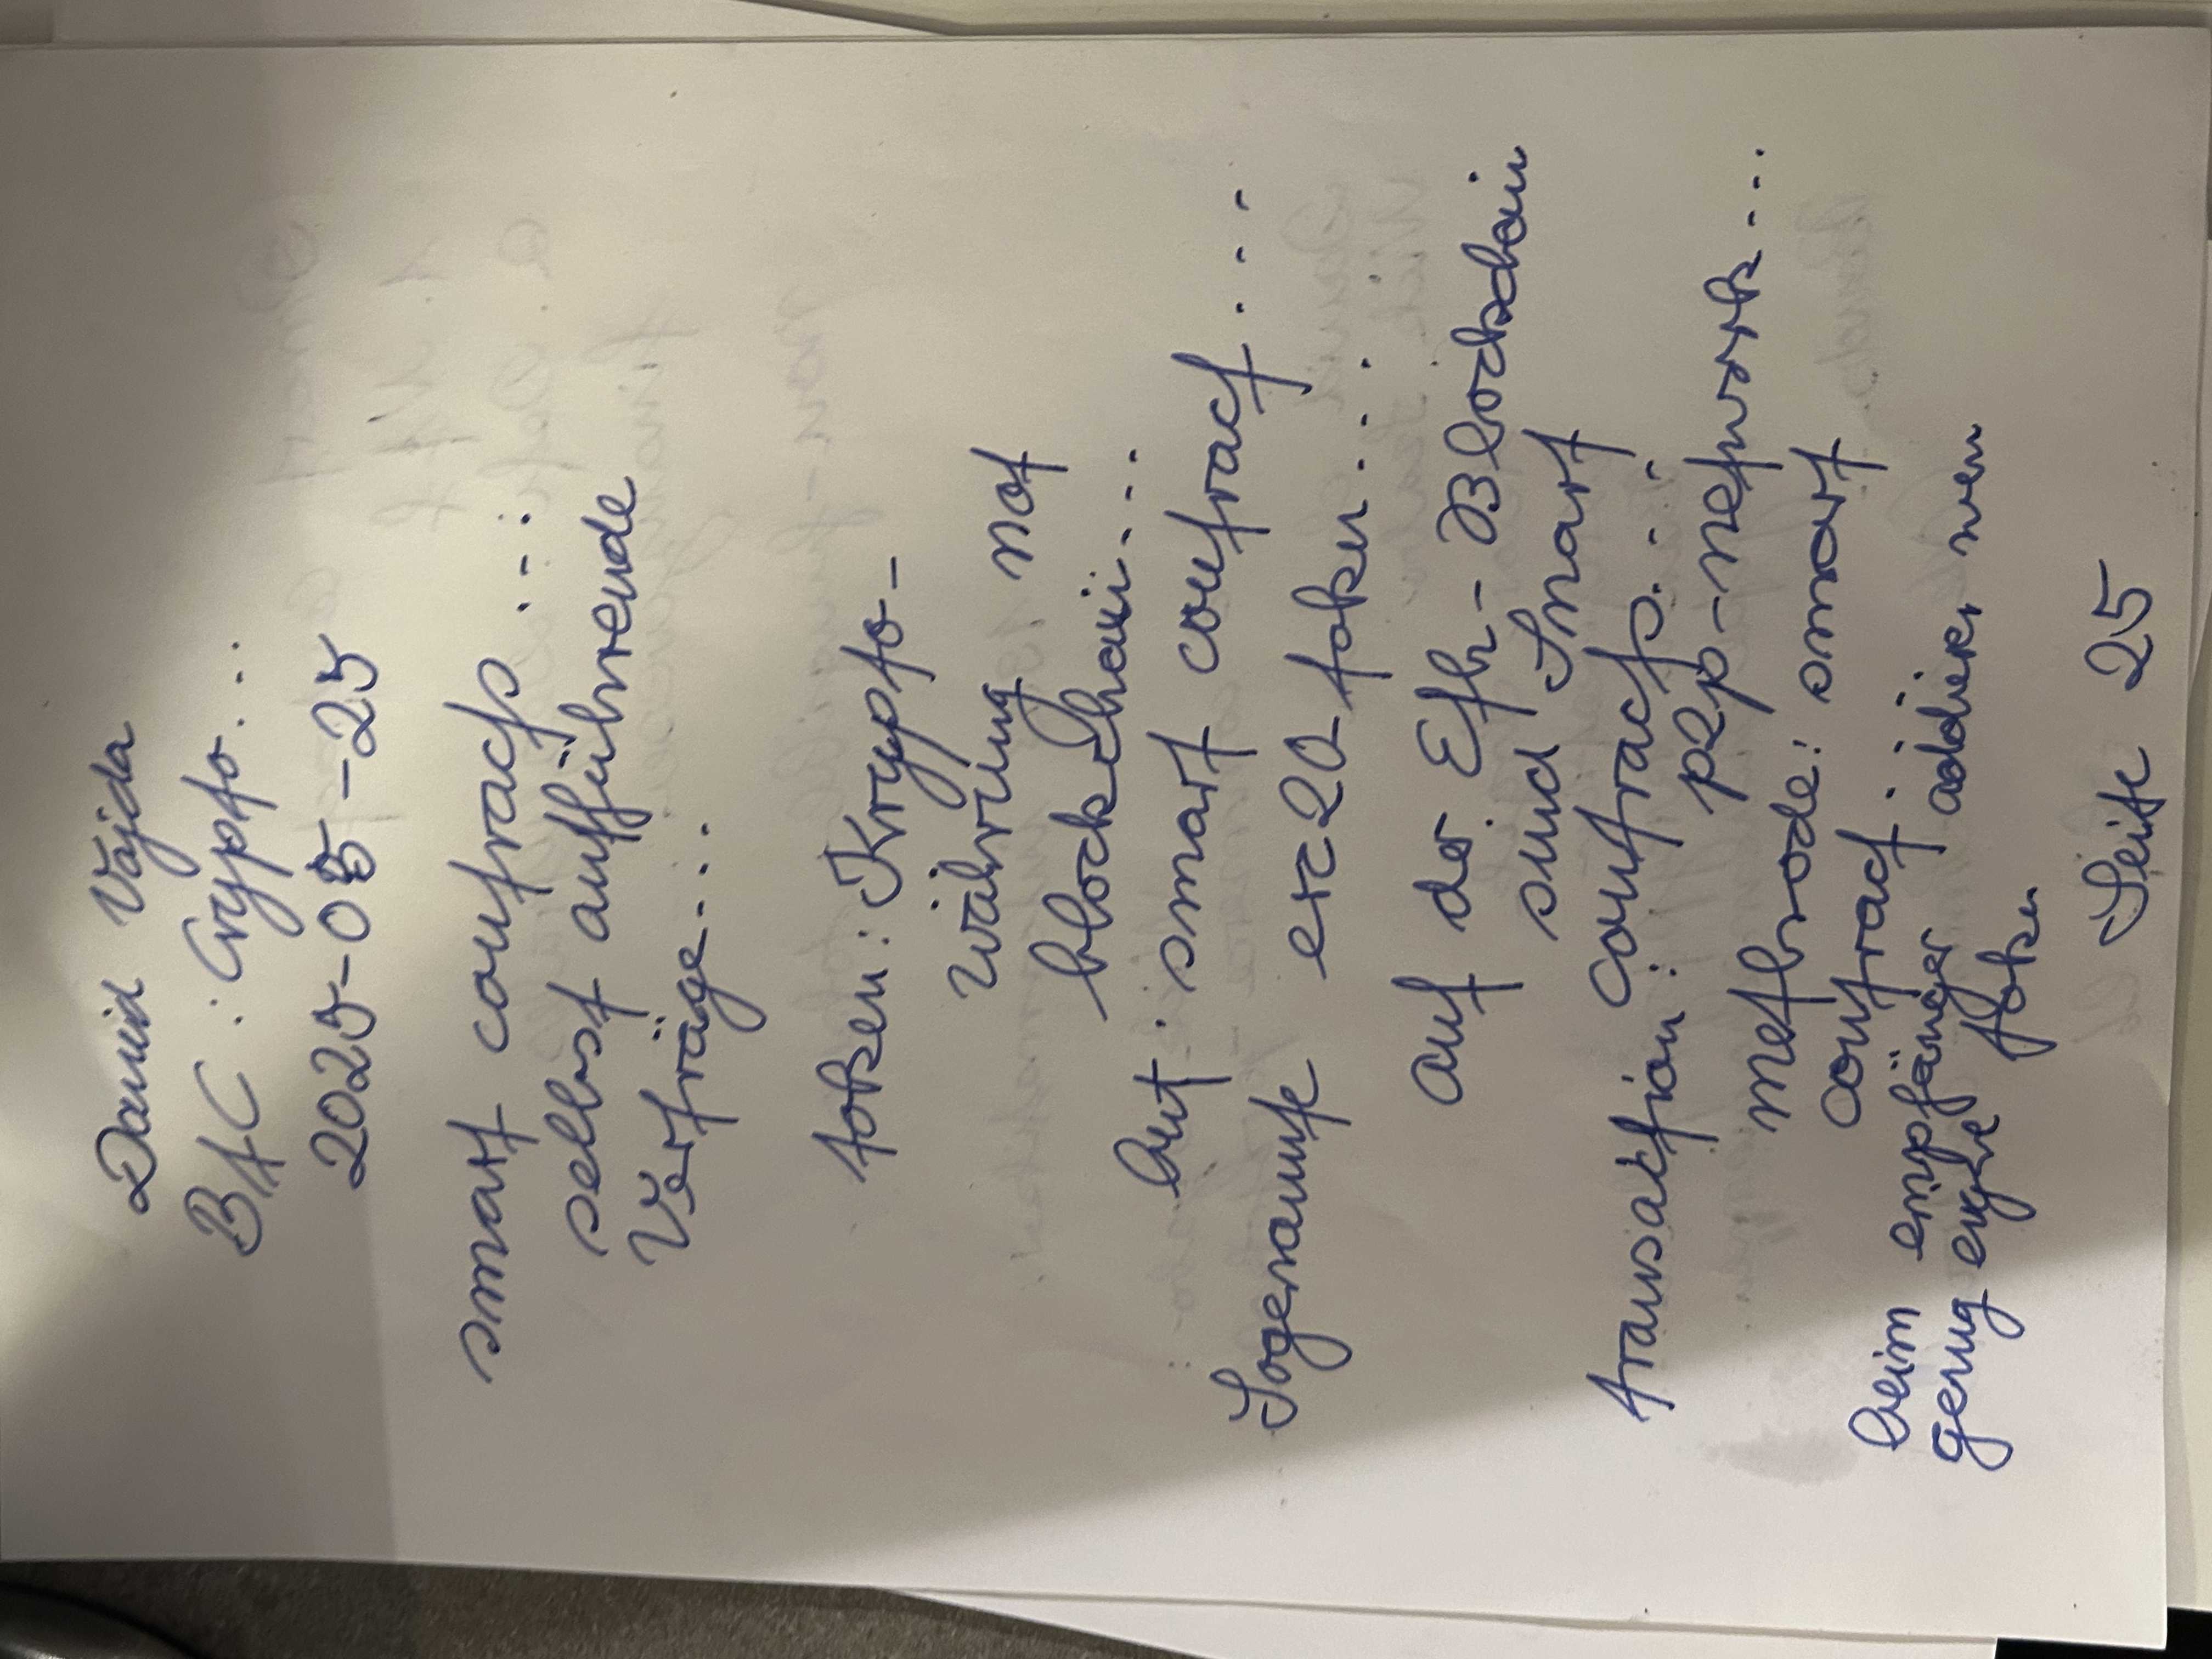 David Vajda
BtC : Crypto...
2025-05-25
smart contracts ....
selbst aufführende
Verträge....
token : Krypto-
währung not
blockchain....
but : smart contract ....
Sogenannte erc20-token ....
auf der Eth-Blockchain
sind Smart
contracts...
transaktion : p2p-network ...
methrode: smart
contract :
beim empfänger addieren wen
genug eigne token
Seite 25